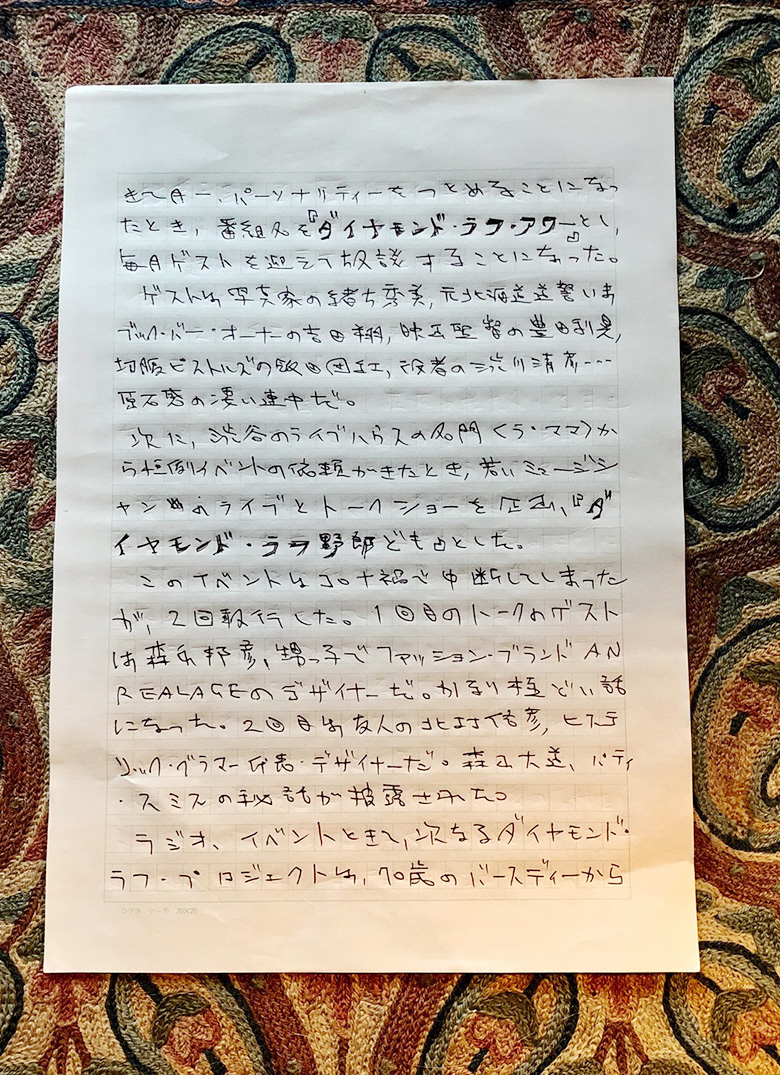 きて月一、パーソナリティーをつとめることになっ
たとき，番組名を『ダイヤモンド・ラフ・アワー』とし，
毎月ゲストを迎えて放談することになった。
ゲストは写真家の緒方秀美，元北海道道警いま
ブック・バー・オーナーの吉田翔，映画監督の豊田利晃，
切腹ピストルズの飯田団紅，役者の渋川清彦……
原石磨の凄い連中だ。
次に，渋谷のライブハウスの名門〈ラ・ママ〉か
ら恒例イベントの依頼がきたとき，若いミュージシ
ャンのライブとトークショーを企画，『ダ
イヤモンド・ラフ野郎ども』とした。
このイベントはコロナ禍で中断してしまった
が，2回敢行した。1回目のトークのゲスト
は森永邦彦，甥っ子でファッション・ブランドAN
REALAGEのデザイナーだ。かなり極どい話
になった。2回目は友人の北村信彦，ヒステ
リック・グラマー代表・デザイナーだ。森山大道、パティ
・スミスの秘話が披露された。
ラジオ、イベントときて，次なるダイヤモンド・
ラフ・プロジェクトは，70歳のバースディーから
コクヨ ケー75 20×20